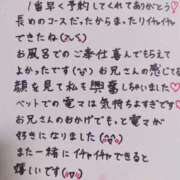 1番早く予約してくれてありがとう♡
長めのコースだったからまったりイチャイチャ
できたね
お風呂でのご奉仕喜んでもらえて
よかったです お兄さんの感じてる
顔を見て私も興奮しちゃいました♡
ベットでの電マは気持ちよすぎです♡
お兄さんのおかげでもっと電マが
好きになりました
また一緒にイチャイチャできると
嬉しいです